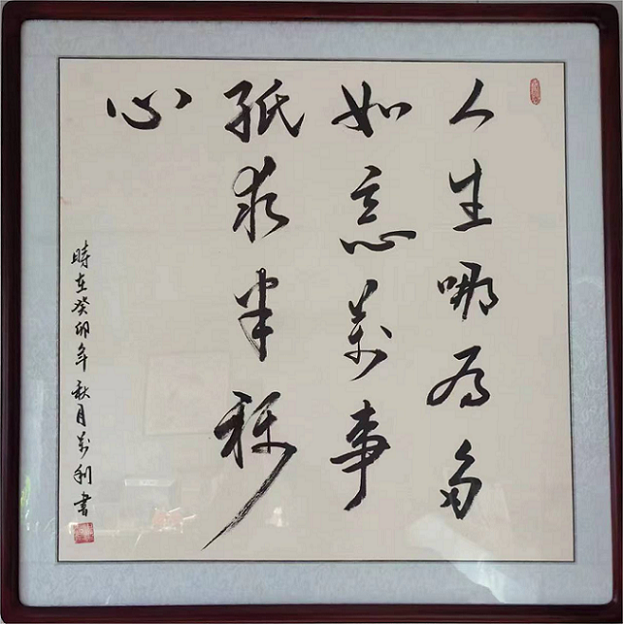 人生哪有多
如意萬事
祇求半称
心
時在癸卯年秋月萬利書